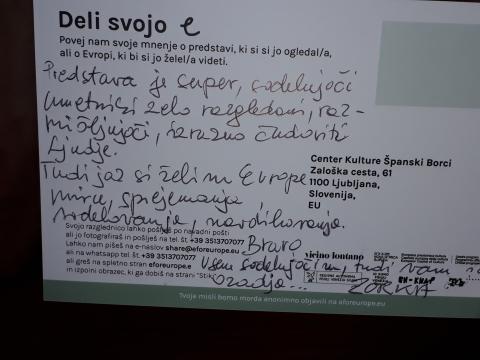 Deli svojo e
Povej nam svoje mnenje o predstavi, ki si si jo ogledal/a,
ali o Evropi, ki bi si jo želel/a videti.
Predstava je super, sodelujoči
umetniki zelo razgledani, raz-
mišljujoči, izrazno čudoviti
ljudje.
Tudi jaz si želim Evrope
miru, sprejemanja,
sodelovanja, navdihovanja.
Bravo
vsem sodelujočim, tudi vam
ozadja...
ZORKA
Center Kulture Španski Borci
Zaloška cesta, 61
1100 Ljubljana,
Slovenija,
EU
Svojo razglednico lahko pošlješ po navadni pošti
ali jo fotografiraš in pošlješ na tel. št. +39 3513707077
Lahko nam pišeš na e-naslov share@eforeurope.eu
ali na whatsapp tel št. +39 3513707077
ali greš na spletno stran eforeurope.e
in izpolni obrazec, ki ga dobiš na strani "Stik
vicino/lontano
Tvoje misli bomo morda anonimno objavili na eforeurope.eu